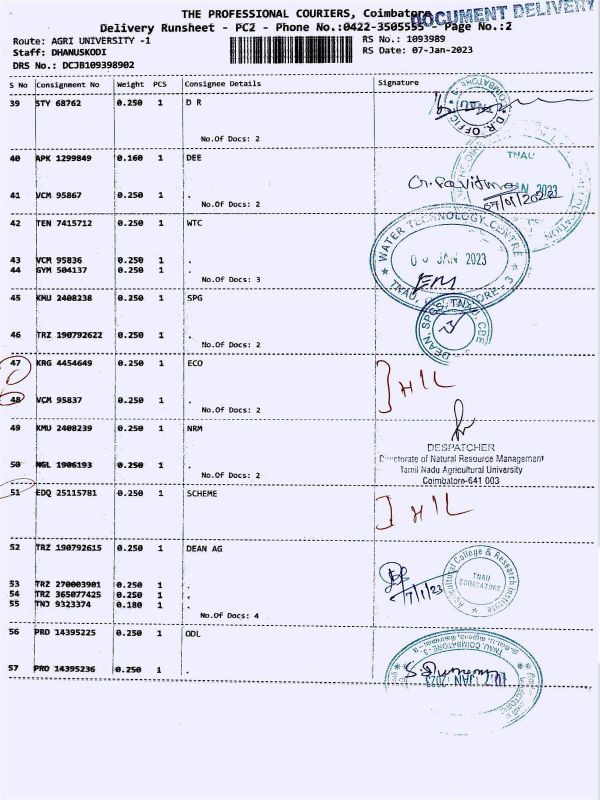 THE PROFESSIONAL COURIERS, Coimbatore
DOCUMENT DELIVERY
Delivery Runsheet - PC2 - Phone No.:0422-3505555 - Page No.:2
Route: AGRI UNIVERSITY -1 RS No.: 1093989
Staff: DHANUSKODI RS Date: 07-Jan-2023
DRS No.: DCJB109398902
S No Consignment No Weight PCS Consignee Details Signature
39 STY 68762 0.250 1 D R
No.Of Docs: 2
D.R. OFFIC
TNAU
COIMBATORE
40 APK 1299849 0.160 1 DEE
TNAU
JAN 2023
07/01/2023
41 VCM 95867 0.250 1 .
No.Of Docs: 2
42 TEN 7415712 0.250 1 WTC
WATER TECHNOLOGY CENTRE
JAN 2023
43 VCM 95836 0.250 1 .
44 GYM 504137 0.250 1 .
No.Of Docs: 3
45 KMU 2408238 0.250 1 SPG
DEAN, SPGS, TNAU, CBE
46 TRZ 190792622 0.250 1 .
No.Of Docs: 2
47 KRG 4454649 0.250 1 ECO
48 VCM 95837 0.250 1 .
No.Of Docs: 2
49 KMU 2408239 0.250 1 NRM
DESPATCHER
Directorate of Natural Resource Management
Tamil Nadu Agricultural University
Coimbatore-641 003
50 NGL 1906193 0.250 1 .
No.Of Docs: 2
51 EDQ 25115781 0.250 1 SCHEME
52 TRZ 190792615 0.250 1 DEAN AG
Agricultural College & Research Institute
TNAU
COIMBATORE
7/1/23
53 TRZ 270003901 0.250 1 .
54 TRZ 365077425 0.250 1 .
55 TNJ 9323374 0.180 1 .
No.Of Docs: 4
56 PRO 14395225 0.250 1 ODL
TNAU, COIMBATORE - 3
JAN 2023
57 PRO 14395236 0.250 1 .